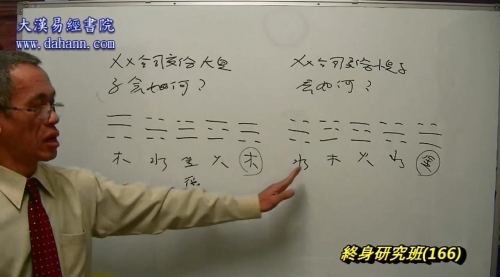 大漢易經書院
www.dahann.com
XX公司交给大兒
子会如何？
XX公司交给小兒子
会如何？
木 水 火 木
水 木 火
終身研究班(166)